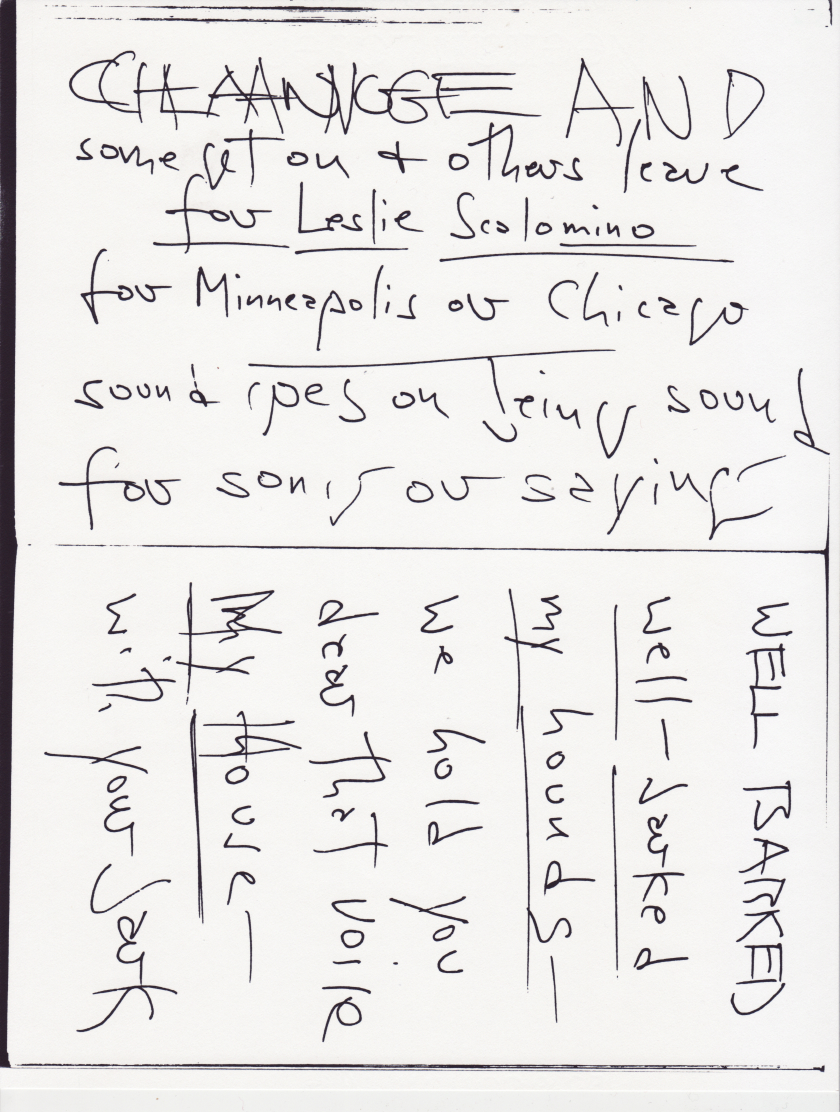 CHANGE AND
some get on + others leave
for Leslie Scolomino
for Minneapolis or Chicago
sound goes on being sound
for song or saying
WELL BARKED
well-barked
my hounds—
we hold you
dear that voice
My house—
with your bark